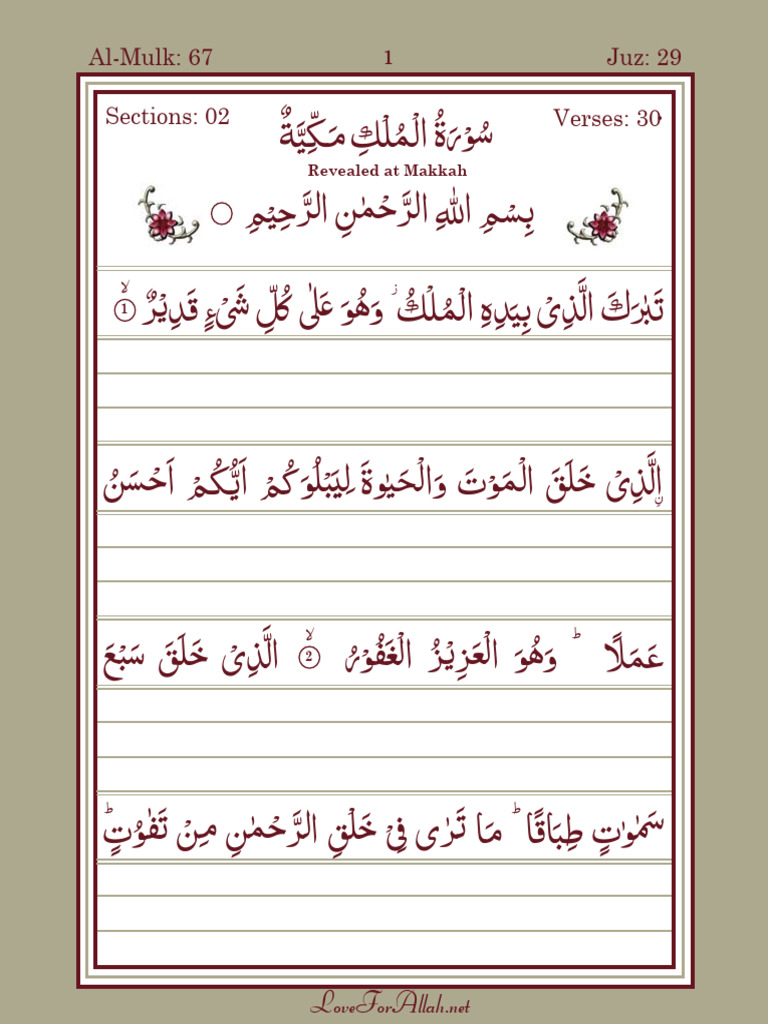 Al-Mulk: 67 1 Juz: 29
Sections: 02 سُوْرَةُ الْمُلْكِ مَكِّيَّةٌ Verses: 30
Revealed at Makkah
بِسْمِ اللّٰهِ الرَّحْمٰنِ الرَّحِيْمِ ۝
تَبٰرَكَ الَّذِىْ بِيَدِهِ الْمُلْكُ ز وَهُوَ عَلٰى كُلِّ شَىْءٍ قَدِيْرٌ ۙ ①
اۨلَّذِىْ خَلَقَ الْمَوْتَ وَالْحَيٰوةَ لِيَبْلُوَكُمْ اَيُّكُمْ اَحْسَنُ
عَمَلًا ؕ وَهُوَ الْعَزِيْزُ الْغَفُوْرُ ۙ ② الَّذِىْ خَلَقَ سَبْعَ
سَمٰوٰتٍ طِبَاقًا ؕ مَا تَرٰى فِىْ خَلْقِ الرَّحْمٰنِ مِنْ تَفٰوُتٍ ؕ
LoveForAllah.net